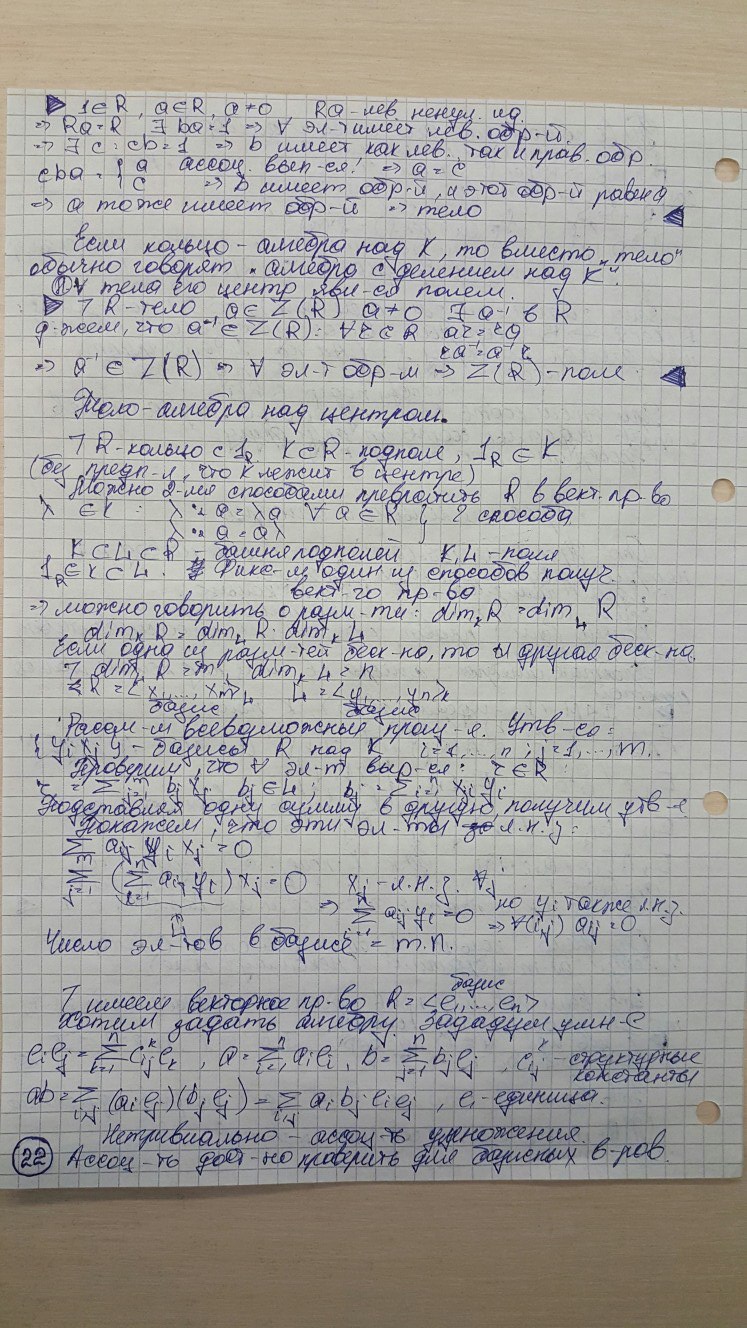 ▶ 1∈R, a∈R, a≠0 Ra-лев. ненул. ид.
⇒ Ra=R ∃ ba=1 ⇒ ∀ эл-т имеет лев. обр-й.
⇒ ∃ c: cb=1 ⇒ b имеет как лев. так и прав. обр.
cba = { a ассоц. вып-ся! ⇒ a=c
c ⇒ b имеет обр-й, и этот обр-й равен a
⇒ a тоже имеет обр-й ⇒ тело ◀
Если кольцо - алгебра над K, то вместо "тело"
обычно говорят "алгебра с делением над K".
∀ тела его центр явл-ся полем.
▶ ] R-тело a∈Z(R) a≠0 ∃ a⁻¹ в R
д-жем, что a⁻¹∈Z(R): ∀r∈R ar=ra
ra⁻¹=a⁻¹r
⇒ a⁻¹∈Z(R) ⇒ ∀ эл-т обр-м ⇒ Z(R)-поле ◀
Тело-алгебра над центром.
] R-кольцо с 1_R K⊂R-подполе, 1_R∈K.
(без предп-я, что K лежит в центре)
Можно 2-мя способами превратить R в вект. пр-во
λ∈K: λ·a=λa ∀a∈R } 2 способа
λ·a=aλ
K⊂L⊂R - башня подполей K,L-поля
1_R∈K⊂L. Фикс-м один из способов получ.
вект-го пр-ва
⇒ можно говорить о разм-ти: dim_K R = dim_L R
dim_K R = dim_L R · dim_K L
Если одна из разм-тей беск-на, то и другая беск-на.
] dim_L R=m, dim_K L=n
R=⟨x₁,...,x_m⟩_L L=⟨y₁,...,y_n⟩_K
базис базис
Рассм-м всевозможные произ-я. Утв-е:
{y_i x_j} - базис R над K i=1,...,n; j=1,...,m.
Проверим, что ∀ эл-т выр-ся: r∈R
r=∑_{j=1}^m b_j x_j b_j∈L; b_j=∑_{i=1}^n y_i
Подставляя одну сумму в другую, получим утв-е
Покажем, что эти эл-ты л.н.з:
∑_{j=1}^m ∑ a_ij y_i x_j = 0
∑_{j=1}^m (∑_{i=1}^n a_ij y_i) x_j = 0 x_j-л.н.з. ∀j
⇒ ∑_{i=1}^n a_ij y_i=0 но y_i также л.н.з.
⇒ ∀(i,j) a_ij=0
Число эл-тов в базисе = m.n.
базис
] имеем векторное пр-во R=⟨e₁,...,e_n⟩
Хотим задать алгебру. Зададим умн-е
e_i e_j=∑^n c_ij^k e_k, a=∑_{i=1}^n a_i e_i, b=∑_{j=1}^n b_j e_j, c_ij^k - структурные
константы
ab=∑_{i,j} (a_i e_j)(b_j e_j)=∑_{i,j} a_i b_j e_i e_j, e₁-единица.
Нетривиально - ассоц-ть умножения.
22 Ассоц-ть дост-но проверить для базисных в-ров.